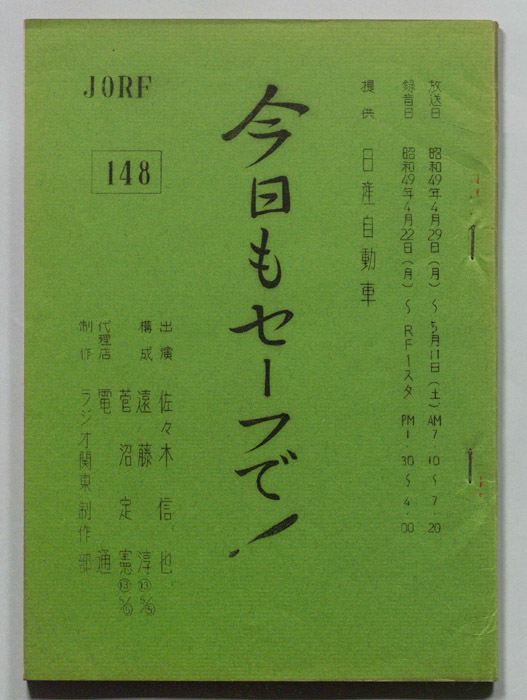 放送日 昭和49年4月29日(月)〜5月11日(土)AM7.10〜7.20
録音日 昭和49年4月22日(月)〜RF1スタ PM1.30〜4.00
提供 日産自動車
今日もセーフで!
JORF
148
出演 佐々木信也
構成 遠藤淳⑬
菅沼定憲⑬
代理店 電通
制作 ラジオ関東制作部